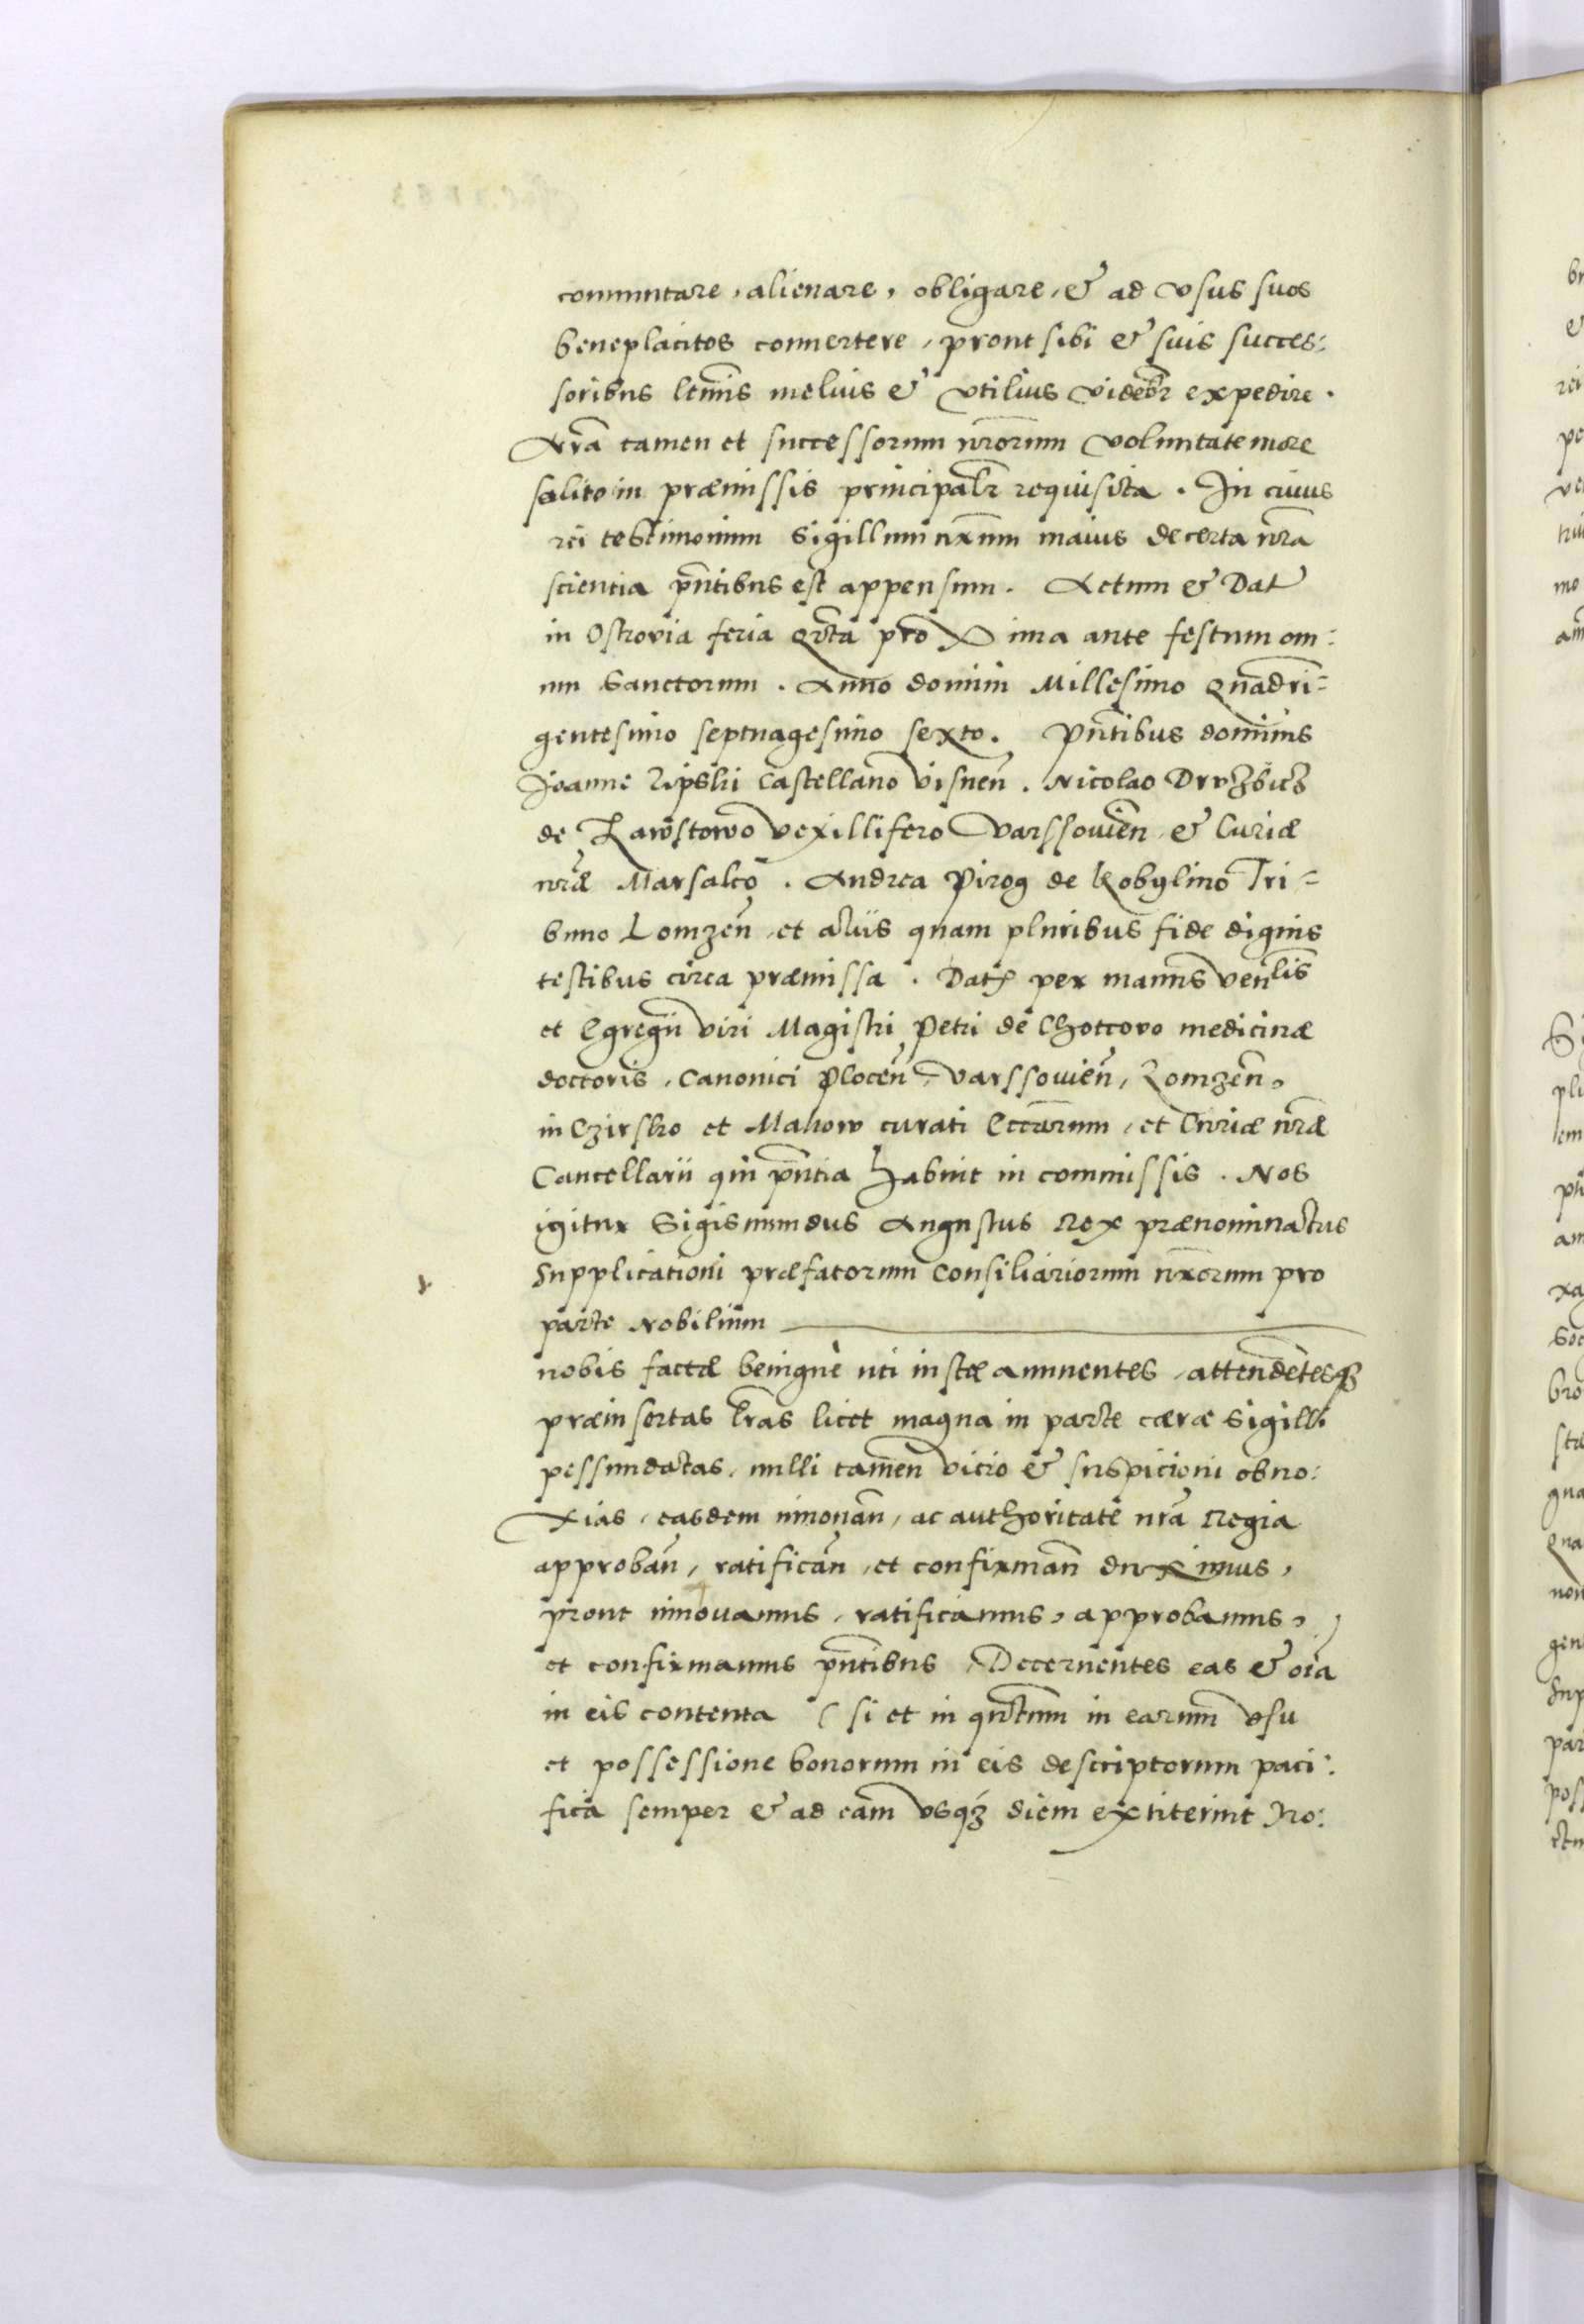 commutare, alienare, obligare, & ad vsus suos
beneplacitos conuertere, prout sibi & suis succes:
soribus ltimis melius & vtilius videbr̃ expedire.
Nrã tamen et successorum nrõrum voluntate more
solito in præmissis principalr̃ requisita. In cuius
rei testimonium Sigillum nrũm maius de certa nrã
scientia pñtibus est appensum. Actum & Dat
in Ostrovia feria qrta proxima ante festum om:
nium Sanctorum. Anno domini Millesimo Quadri=
gentesimo septuagesimo sexto. Pñtibus dominis
Joanne Lipski Castellano Visnen̄. Nicolao Drvzbicz
de Lawstowo vexillifero Varssouien̄ & Curiæ
nrǣ Marsalco. Andrea Pirog de Kobylino Tri=
buno Lomzen̄, et aliis quam pluribus fide dignis
testibus circa præmissa. Dat per manus venlis
et Egregii viri Magistri Petri de Chottovo medicinæ
doctoris, Canonici Plocen̄ Varssouien̄, Lomzen̄,
in Czirsko et Makow curati Eccarum, et Curiæ nrǣ
Cancellarii qui pñtia habuit in commissis. Nos
igitur Sigismundus Augustus Rex prænominatus
Supplicationi præfatorum Consiliariorum nrõrum pro
parte Nobilium
nobis factæ benignè uti iustæ annuentes, attendētesqȝ
præinsertas lrãs licet magna in parte cæræ Sigilli
pessundatas, nulli tamen vicio & suspicioni obno:
xias, easdem innouan̄, ac authoritate nrã Regia
approban̄, ratifican̄, et confirman̄ duximus,
prout innouamus, ratificamus, approbamus,
et confirmamus pñtibus, Decernentes eas & oiã
in eis contenta (si et in quãtum in earum vsu
et possessione bonorum in eis descriptorum paci:
fica semper & ad eam vsqȝ diem extiterint No: